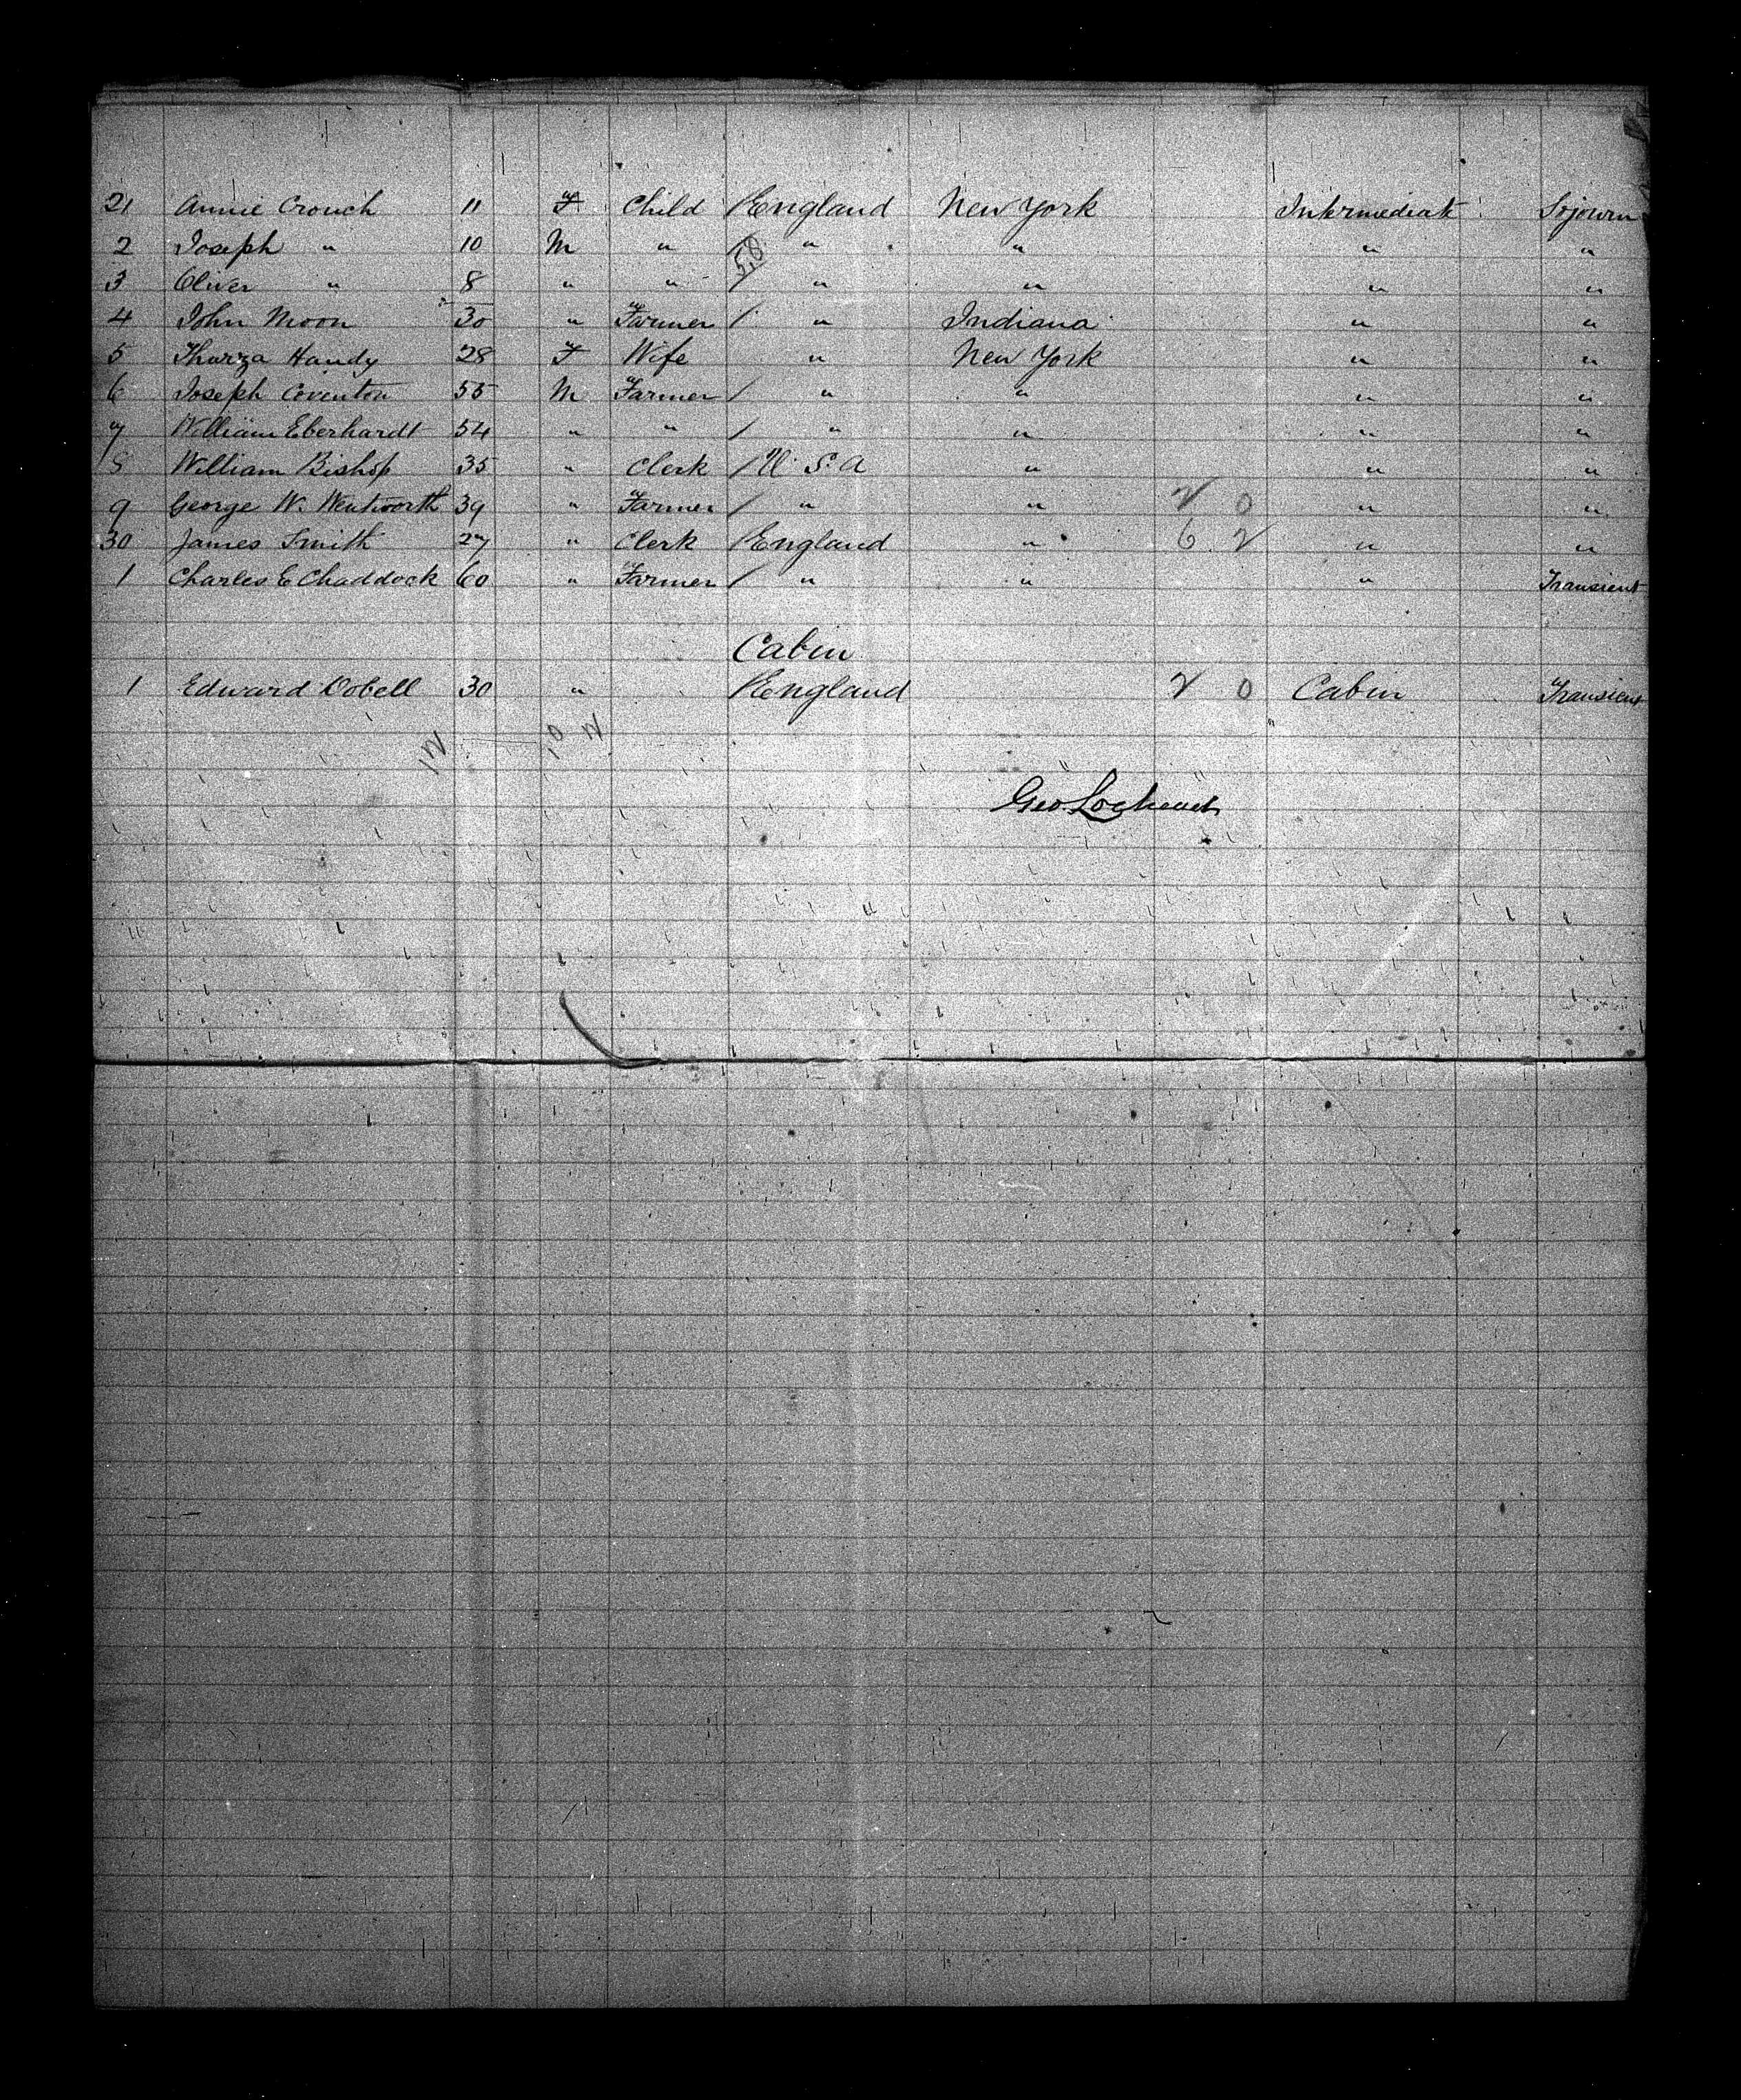 21 Annie Crouch 11 F. Child England New York Intermediate Sojourn
2 Joseph " 10 M " " " " "
3 Oliver " 8 " " " " " "
4 John Moon 30 " Farmer " Indiana " "
5 Thurza Handy 28 F Wife " New York " "
6 Joseph Coventon 55 M Farmer " " " "
7 William Eberhardt 54 " " " " " "
8 William Bishop 35 " Clerk U.S.A " " "
9 George W. Wentworth 39 " Farmer " " 2 0 " "
30 James Smith 27 " Clerk England " 6 2 " "
1 Charles E Chaddock 60 " Farmer " " " Transient
Cabin
1 Edward Dobell 30 " England 2 0 Cabin Transient
12 10 2
Geo.